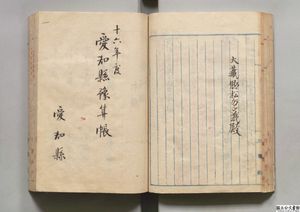 大藏卿松方正義殿
十六年度
愛知縣豫算帳
愛知縣
国立公文書館